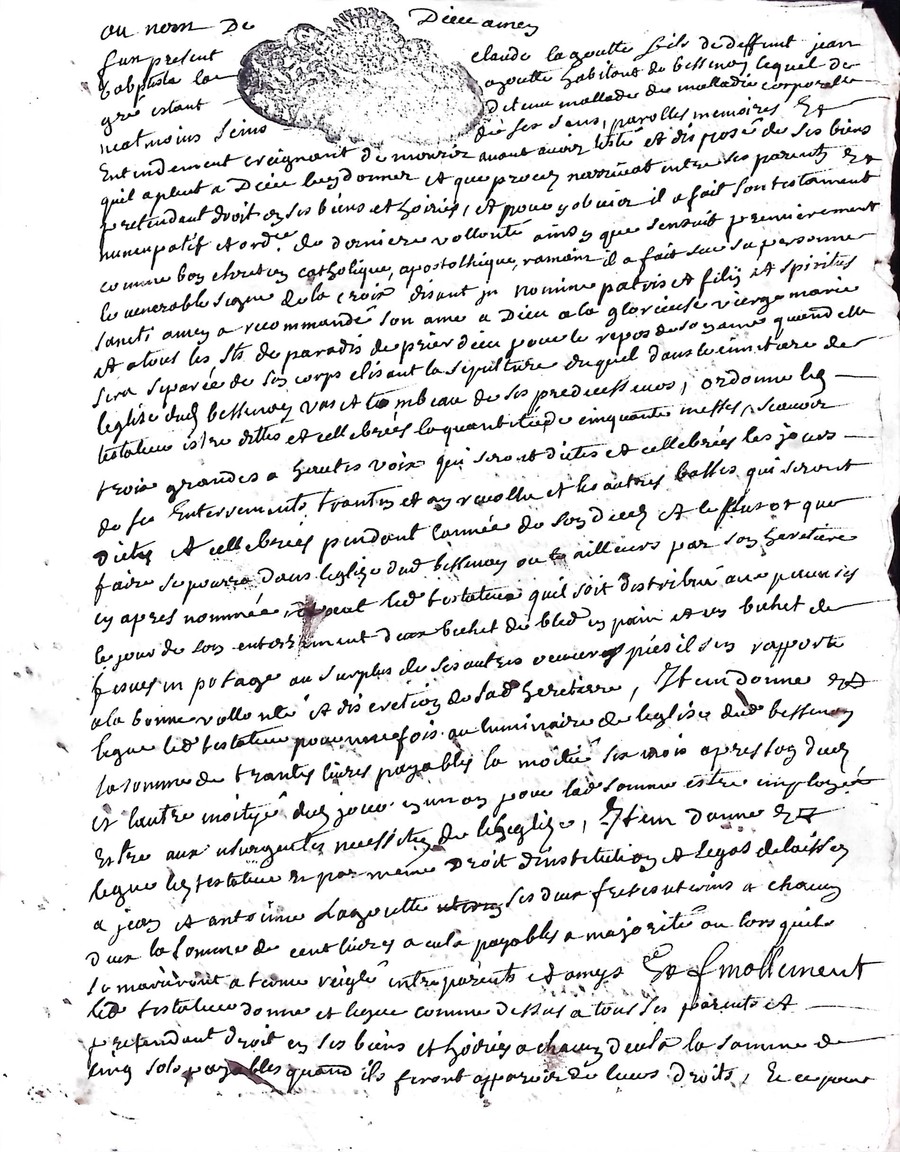 au nom De Dieu amen
fut present claude lagoutte fils de deffunt jean
baptiste lagoutte habitant de bessenay lequel de
gré estant Detenu mallade de malladie corporelle
neatmoins seins de ses sens, parolles memoires Et
Entendement creignant de mourir avant avoir testé et disposé de ses biens
quil a pleut a Dieu luy donner et que procez narrivat entre ses parents Et
pretendant droit en ses biens et hoiries, et pour y obvier il a fait son testament
nuncupatif et ord.re de derniere vollonté ainsy que sensuit premierement
comme bon chretien catholique, apostholique, romain il a fait sur sa personne
le venerable signe de la croix disant jn nomine patris et filij et spiritus
sancti amen a recommandé son ame a Dieu a la glorieuse vierge marie
et a tous les sts de paradis de prier dieu pour le repos de son ame quand elle
sera separée de son corps elisant la sepulture duquel dans le cimetiere de
leglise dud bessenay vas et tombeau de ses predecesseurs, ordonne led
testateur estre dittes et cellebrées la quantité de cinquante messes, scavoir
trois grandes a hautes voix qui seront dites et cellebrées les jours
de ses Enterrements trantin et an revollu et les autres basses qui seront
Dictes et cellebrées pendant lannée de son deces et le plustot que
faire se pourra dans leglize dud bessenay ou ailleurs par son heretiere
cy apres nommée veut led testateur quil soit distribué aux pauvres
le jour de son enterrement deux bichet de bled en pain et un bichet de
feves en potage au surplus de ses autres oeuvres pies il sen rapporte
a la bonne vollonté et discretion de sad heretiere, Item donne et
legue led testateur pour une fois au luminaire de leglise dud bessenay
la somme de trantes livres payables la moitié six mois apres son deces
et lautre moityé dud jour en un an pour lad somme estre employée
Estre aux urgentes necessités de leglize, Item donne Et
legue led testateur et par meme Droit dinstitution et legat delaisse
a jean et antoine Lagoutte ses deux freres uterins a chacun
deux la somme de cent livres a cela payables a majorité ou lorsquils
se mariront a forme reiglé entre parents et amys Et finallement
led testateur donne et legue comme dessus a tous ses parents et
pretendant droit en ses biens et hoiries a chacun deux la somme de
cinq sols payables quand ils feront apparoir de leurs droits, Et ce pour